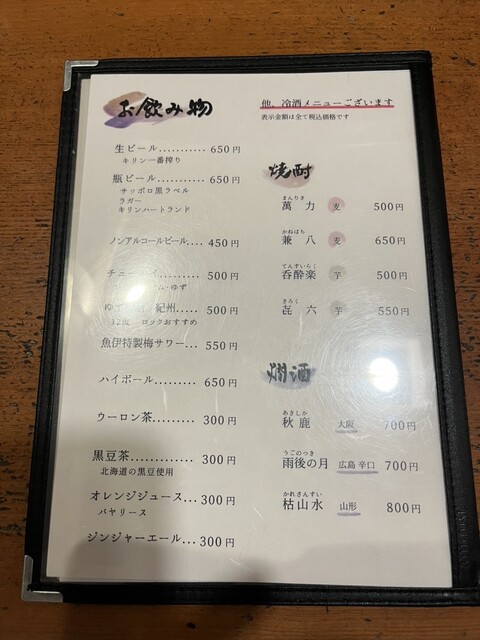 お飲み物
生ビール...........650円
キリン一番搾り
瓶ビール...........650円
サッポロ黒ラベル
ラガー
キリンハートランド
ノンアルコールビール....450円
500円
ゆず
紀州.....500円
ロックおすすめ
魚伊特製梅サワー...550円
ハイボール.........650円
ウーロン茶.........300円
黒豆茶.............300円
北海道の黒豆使用
オレンジジュース...300円
バヤリース
ジンジャーエール...300円
他、冷酒メニューございます
表示金額は全て税込価格です
焼酎
まんりき
萬力 麦 500円
かねはち
兼八 麦 650円
てんすいらく
呑酔楽 芋 500円
きろく
㐂六 芋 550円
燗酒
あきしか
秋鹿 大阪 700円
うごのつき
雨後の月 広島 辛口 700円
かれさんすい
枯山水 山形 800円